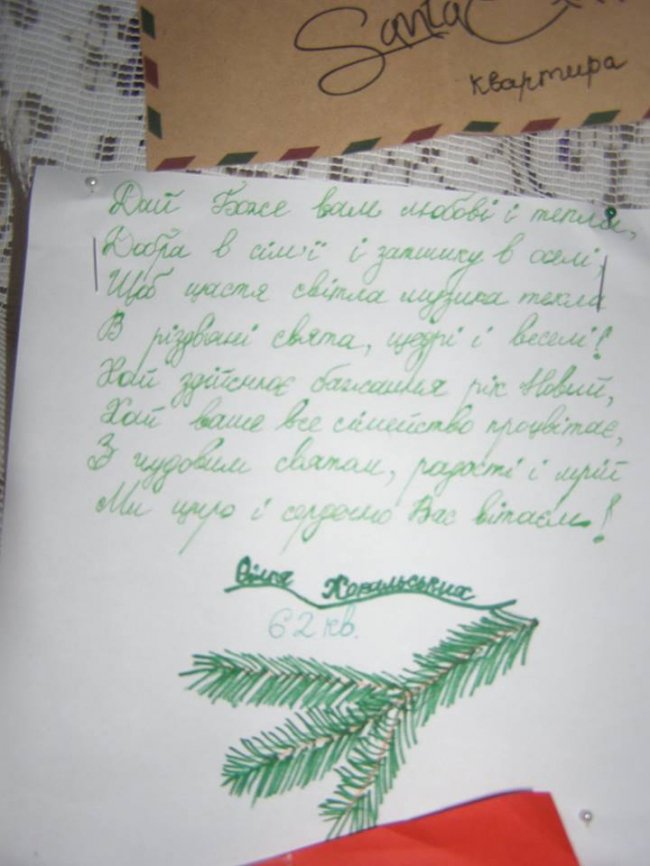 Santa C
квартира
Дай Боже вам любові і тепла,
Добра в сім'ї і затишку в оселі,
Щоб щастя світла музика текла
В різдвяні свята, щедрі і веселі!
Хай здійснює бажання рік Новий,
Хай ваше все сімейство процвітає,
З чудовим святом, радості і мрій
Ми щиро і сердечно Вас вітаєм!
Сім'я
62 кв.